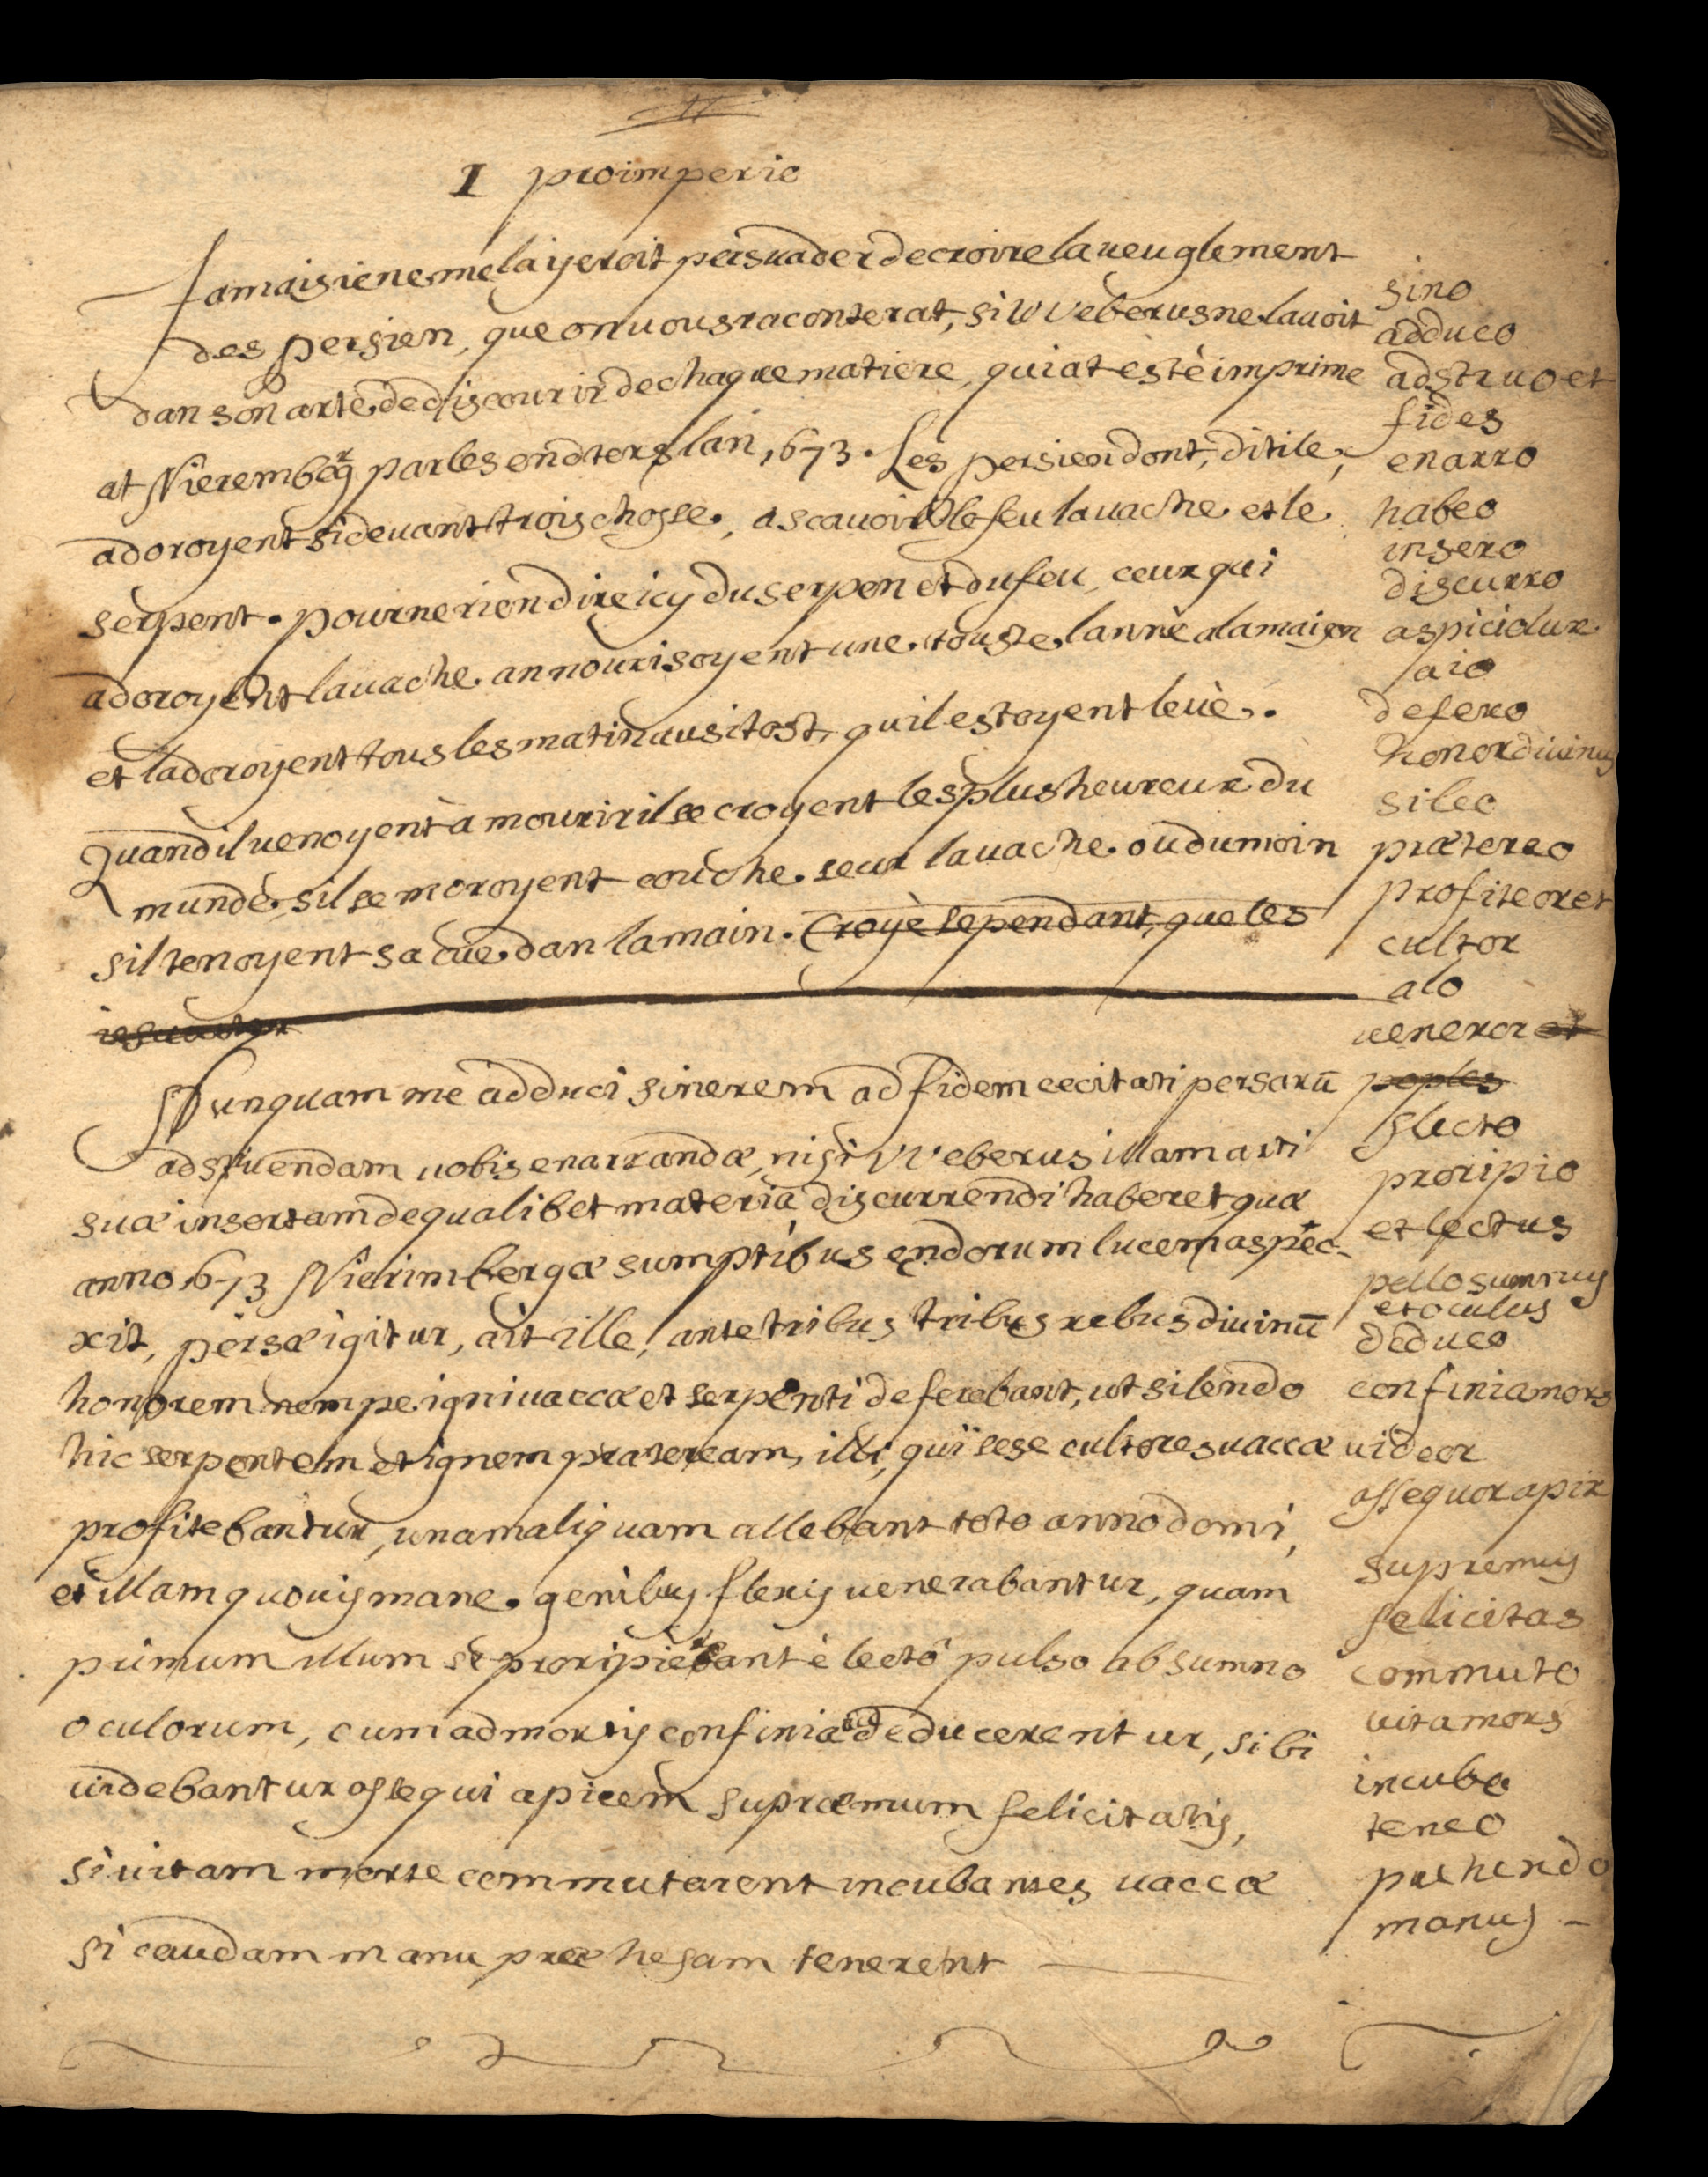 I pro imperio
Jamais ie ne me layeroit persuader de croire laueuglement
des persien, que on uous raconterat, si W Veberus ne lauoit
dan son arte de discourir de chaque matiere, qui at estè imprime
at Nierembeg parles endters lan, 673. Les persien dont, dit ile,
adoroyent si deuant trois chosse, ascauoir le feu lauache et le
serpent. pour ne rien dire icy du serpen et du feu, ceux qui
adoroyent lauache an nourisoyent une touste lannè alamaison
et ladoroyent tous les matin ausitost, quil estoyent leuè.
Quand il uenoyent à mourir il se croyent les plus heureux du
munde, sil se moroyent couche seur lauache ou du moin
sil tenoyent sa cue dan la main. Croyè sependant, que les
Nunquam me adduci sinerem ad fidem cecitati persarū
adstruendam uobis enarrandæ, nisi VVeberus illam arti
suæ insertam de qualibet materia discurrendi haberet, quæ
anno 673 Nierimbergæ sumptibus endorum lucem aspec-
xit, persæ igitur, ait ille, ante tribus tribus rebus diuinū
honorem nempe igni uaccæ et serpenti deferebant, ut silendo
hic serpentem et ignem præteream, illi, qui sese cultores uaccæ
profitebantur, unam aliquam allebant toto anno domi,
et illam quouis mane genibus flexis uenerabantur, quam
primum illum se proripiebant è lectô pulso ab sumno
oculorum, cum ad mortis confinia deducerentur, sibi
uidebantur assequi apicem supræmum felicitatis,
si uitam morte commutarent incubantes uaccæ
si caudam manu præhesam tenerent
sino
adduco
adstruo et
fides
enarro
habeo
insero
discurro
aspicio lux
aio
defero
honor diuinus
sileo
prætereo
profiteor et
cultor
alo
ueneror et
poples
flecto
proripio
et lectus
pello sumnus
et oculus
deduco
confinia mors
uideor
assequor apix
supremus
felicitas
commuto
uita mors
incubo
teneo
prehendo
manus -